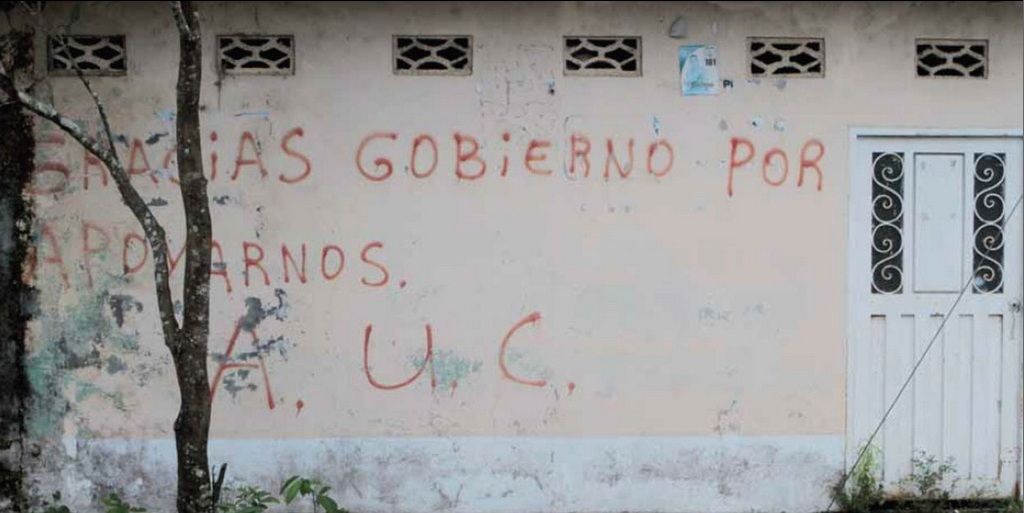 GRACiAS GOBiERNO POR
APOYARNOS.
A. U. C.
101